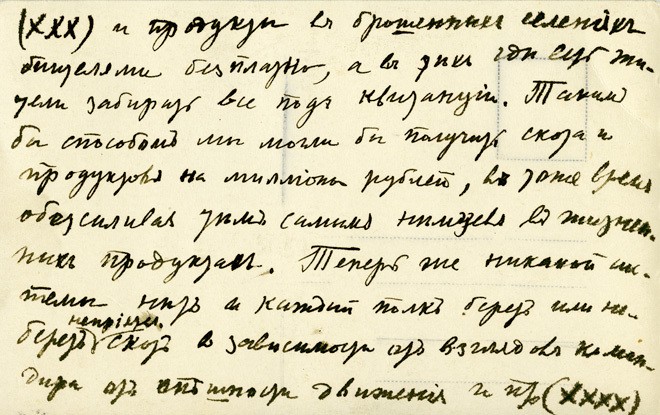 (XXX) и продукты въ брошенныхъ селенiяхъ
жителями безплатно, а въ тѣхъ гдѣ есть жи-
тели забирать все подъ квитанцiи. Такимъ
бы способомъ мы могли бы получить скота и
продуктовъ на миллiоны рублей, въ тоже время
обезсиливая тѣмъ самымъ нѣмцевъ въ жизнен-
ныхъ продуктахъ. Теперь же никакой си-
стемы нѣтъ и каждый полкъ беретъ или не-
беретъ скотъ в зависимости отъ взглядовъ коман-
дира отъ спѣшности движенiя и пр (XXXX)